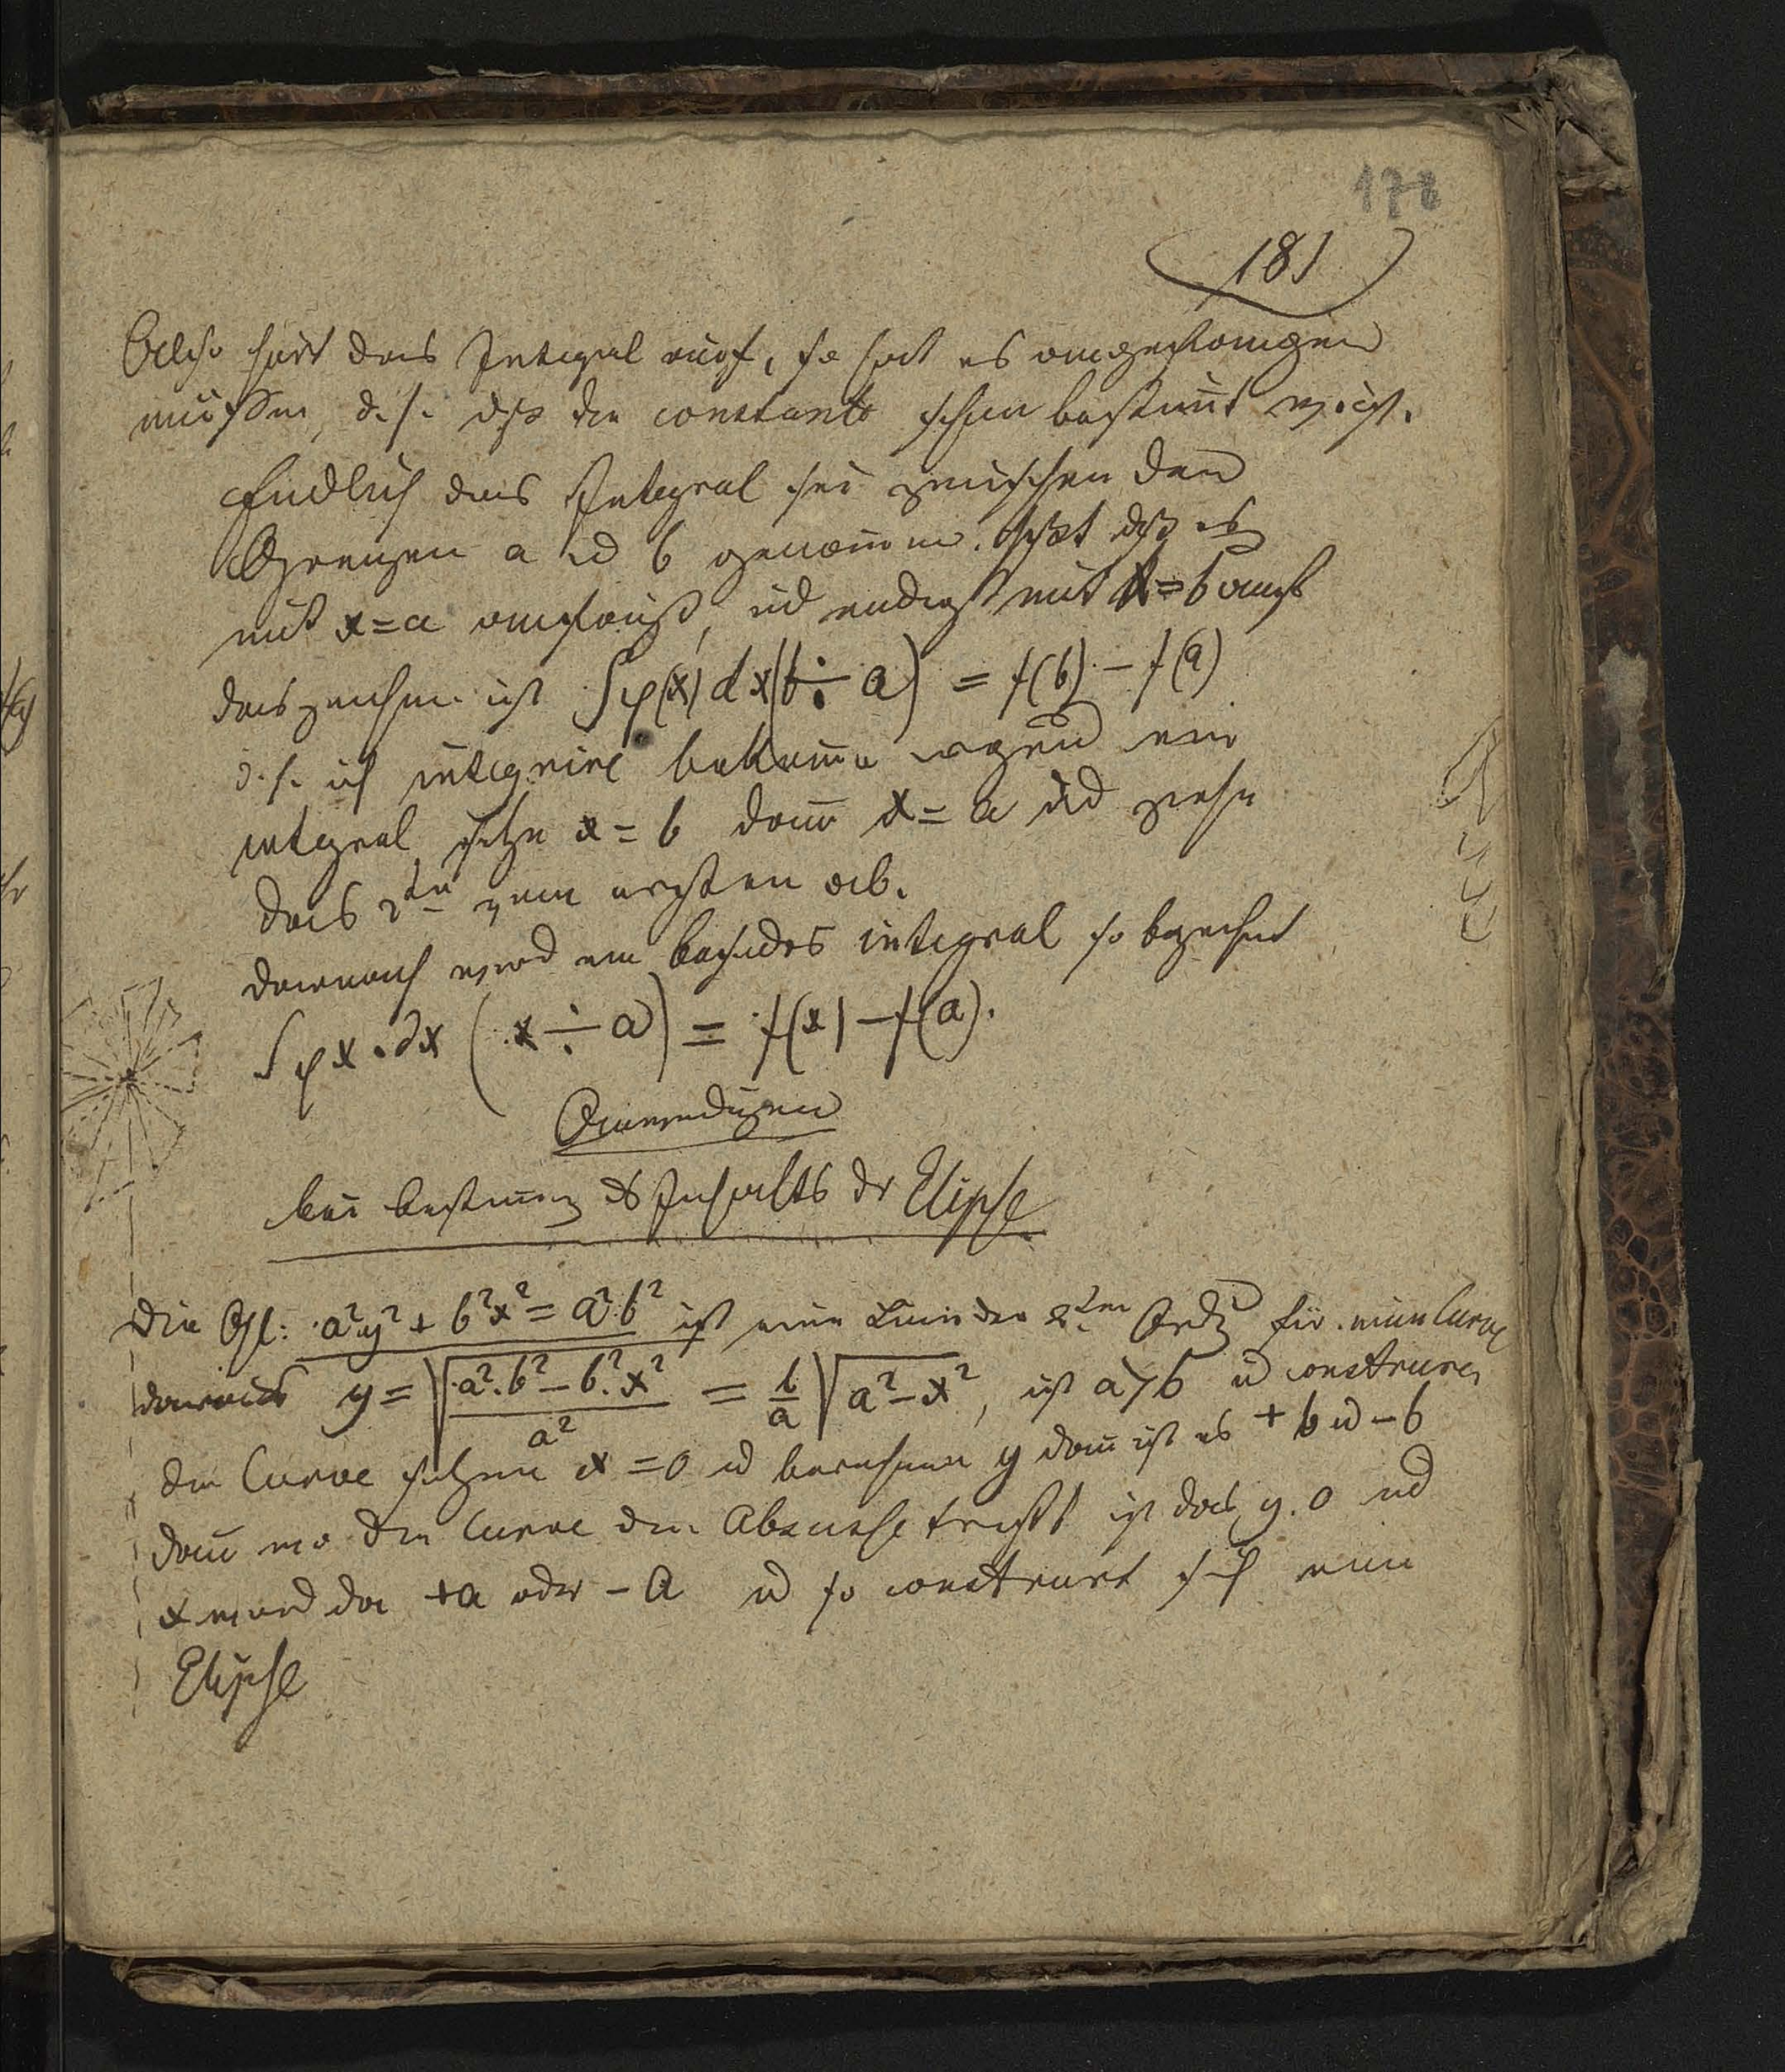 178
181
Also hört das Integral auf, so hat es angefangen
müssen, d. h. dß die constante schon bestim̄t ist.
Endlich das Integral sei zwischen den
Grenzen a ud b genom̄en. heißt dß es
mit x=a anfängt, ud endigt mit x=b
das zeichen ist ∫φ(x) dx (b ÷ a) = f(b) − f(a)
d. h. ich integrire bekom̄e irgend ein
integral setze x = b dan̄ x = a ud ziehe
das 2te vom ersten ab.
darnach wird ein integral so bezeichnet
∫φx . dx (x ÷ a) = f(x) − f(a).
Anwendugen
bei bestim̄ng des Inhalts dr Elipse
Die Gl: a²y² + b²x² = a²b² ist eine Linie der 2ten Ordg für eine Curve
daraus y = √(a².b² − b².x² / a²) = b/a √(a² − x²), ist a>b ud construire
die Curve setzen x = 0 ud berechnen y dan̄ ist es + b ud − b
dan̄ wo die Curve die Abscisse trifft ist das y. 0 ud
x wird da +a oder − a ud so construirt sich eine
Elipse